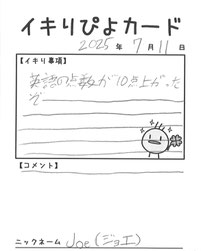 イキりぴよカード
2025年7月11日
【イキり事項】
英語の点数が10点上がった
ぞ
【コメント】
ニックネーム Joe(ジョエ)